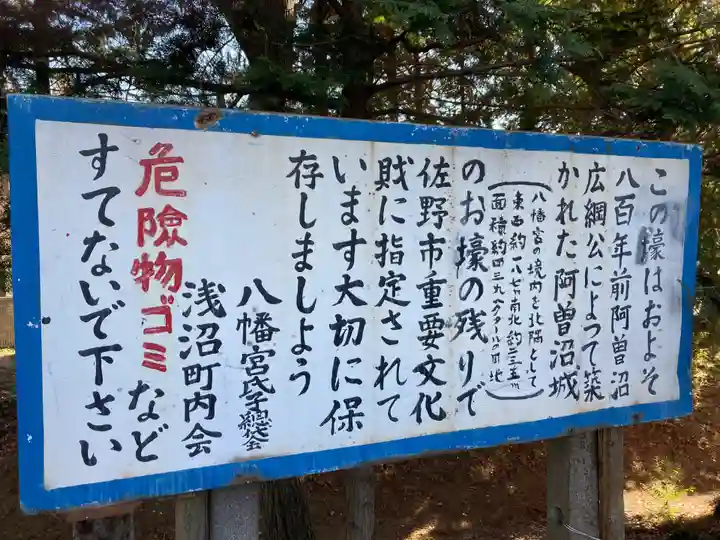 この壕はおよそ
八百年前阿曽沼
広綱公によって築
かれた阿曽沼城
(八幡宮の境内を北隅として
東西約一八七m南北約二三五m
面積約四三九ヘクタールの用地)
のお壕の残りで
佐野市重要文化
財に指定されて
います大切に保
存しましよう
八幡宮氏子総代会
浅沼町内会
危險物ゴミなど
すてないで下さい